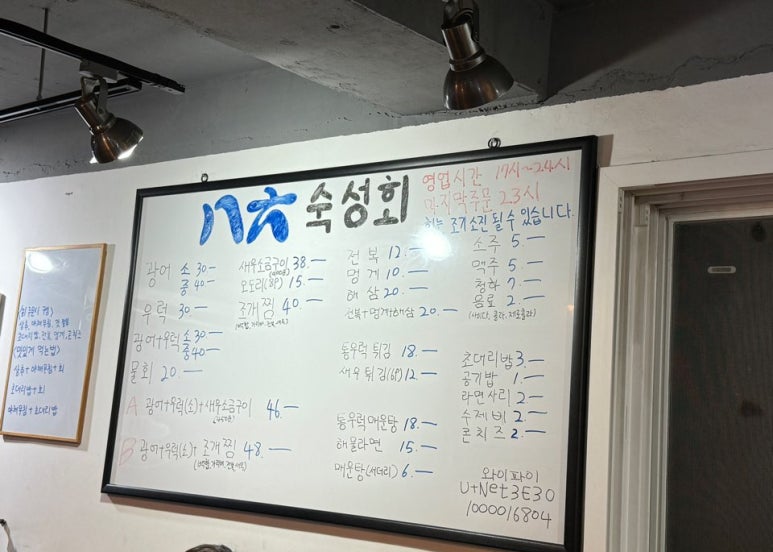 八六 숙성회
영업시간 17시~24시
마지막주문 23시
회는 조기소진 될 수 있습니다.
광어 소 30-
중 40-
우럭 30-
광어+우럭 소 30-
중 40-
물회 20-
새우소금구이 38.-
오도리(8P) 15.-
조개찜 40-
전복 12.-
멍게 10.-
해삼 20.-
전복+멍게+해삼 20.-
통우럭 튀김 18.-
새우튀김(6P) 12.-
통우럭매운탕 18.-
해물라면 15.-
매운탕(서더리) 6.-
소주 5.-
맥주 5.-
청하 7.-
음료 2.-
(사이다, 콜라, 제로콜라)
초대리밥 3.-
공기밥 1.-
라면사리 2-
수제비 2-
콘치즈 2.-
A 광어+우럭(소)+새우소금구이 46.-
B 광어+우럭(소)+조개찜 48.-
와이파이
U+Net3E30
1000016804
<맛있게 먹는법>
초대리밥+회
야채무침+초대리밥